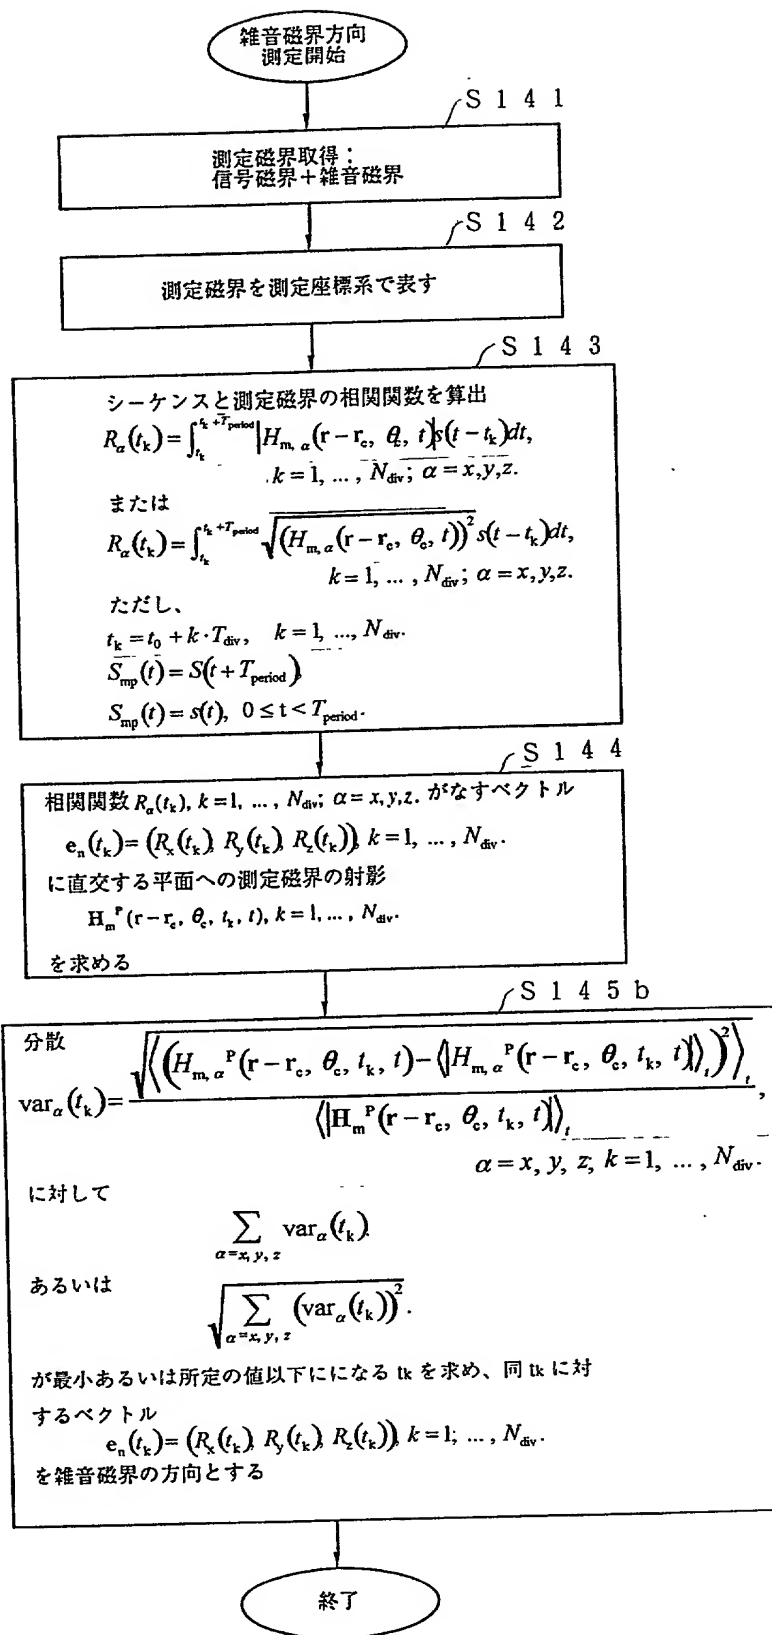 雑音磁界方向
測定開始
S141
測定磁界取得：
信号磁界＋雑音磁界
S142
測定磁界を測定座標系で表す
S143
シーケンスと測定磁界の相関関数を算出
R_α(t_k)=∫_{t_k}^{t_k+T_period}|H_{m, α}(r−r_c, θ_c, t)|s(t−t_k)dt,
k=1, ..., N_div; α=x,y,z.
または
R_α(t_k)=∫_{t_k}^{t_k+T_period}√((H_{m, α}(r−r_c, θ_c, t))^2) s(t−t_k)dt,
k=1, ..., N_div; α=x,y,z.
ただし、
t_k=t_0+k·T_div, k=1, ..., N_div.
S_mp(t)=S(t+T_period),
S_mp(t)=s(t), 0≤t<T_period.
S144
相関関数 R_α(t_k), k=1, ..., N_div; α=x,y,z. がなすベクトル
e_n(t_k)=(R_x(t_k), R_y(t_k), R_z(t_k)), k=1, ..., N_div.
に直交する平面への測定磁界の射影
H_m^P(r−r_c, θ_c, t_k, t), k=1, ..., N_div.
を求める
S145b
分散
var_α(t_k)=√⟨(H_{m, α}^P(r−r_c, θ_c, t_k, t)−⟨|H_{m, α}^P(r−r_c, θ_c, t_k, t)|⟩_t)^2⟩_t / ⟨|H_m^P(r−r_c, θ_c, t_k, t)|⟩_t,
α=x, y, z, k=1, ..., N_div.
に対して
∑_{α=x, y, z} var_α(t_k).
あるいは
√(∑_{α=x, y, z}(var_α(t_k))^2).
が最小あるいは所定の値以下にになる tk を求め、同 tk に対
するベクトル
e_n(t_k)=(R_x(t_k), R_y(t_k), R_z(t_k)), k=1; ..., N_div.
を雑音磁界の方向とする
終了